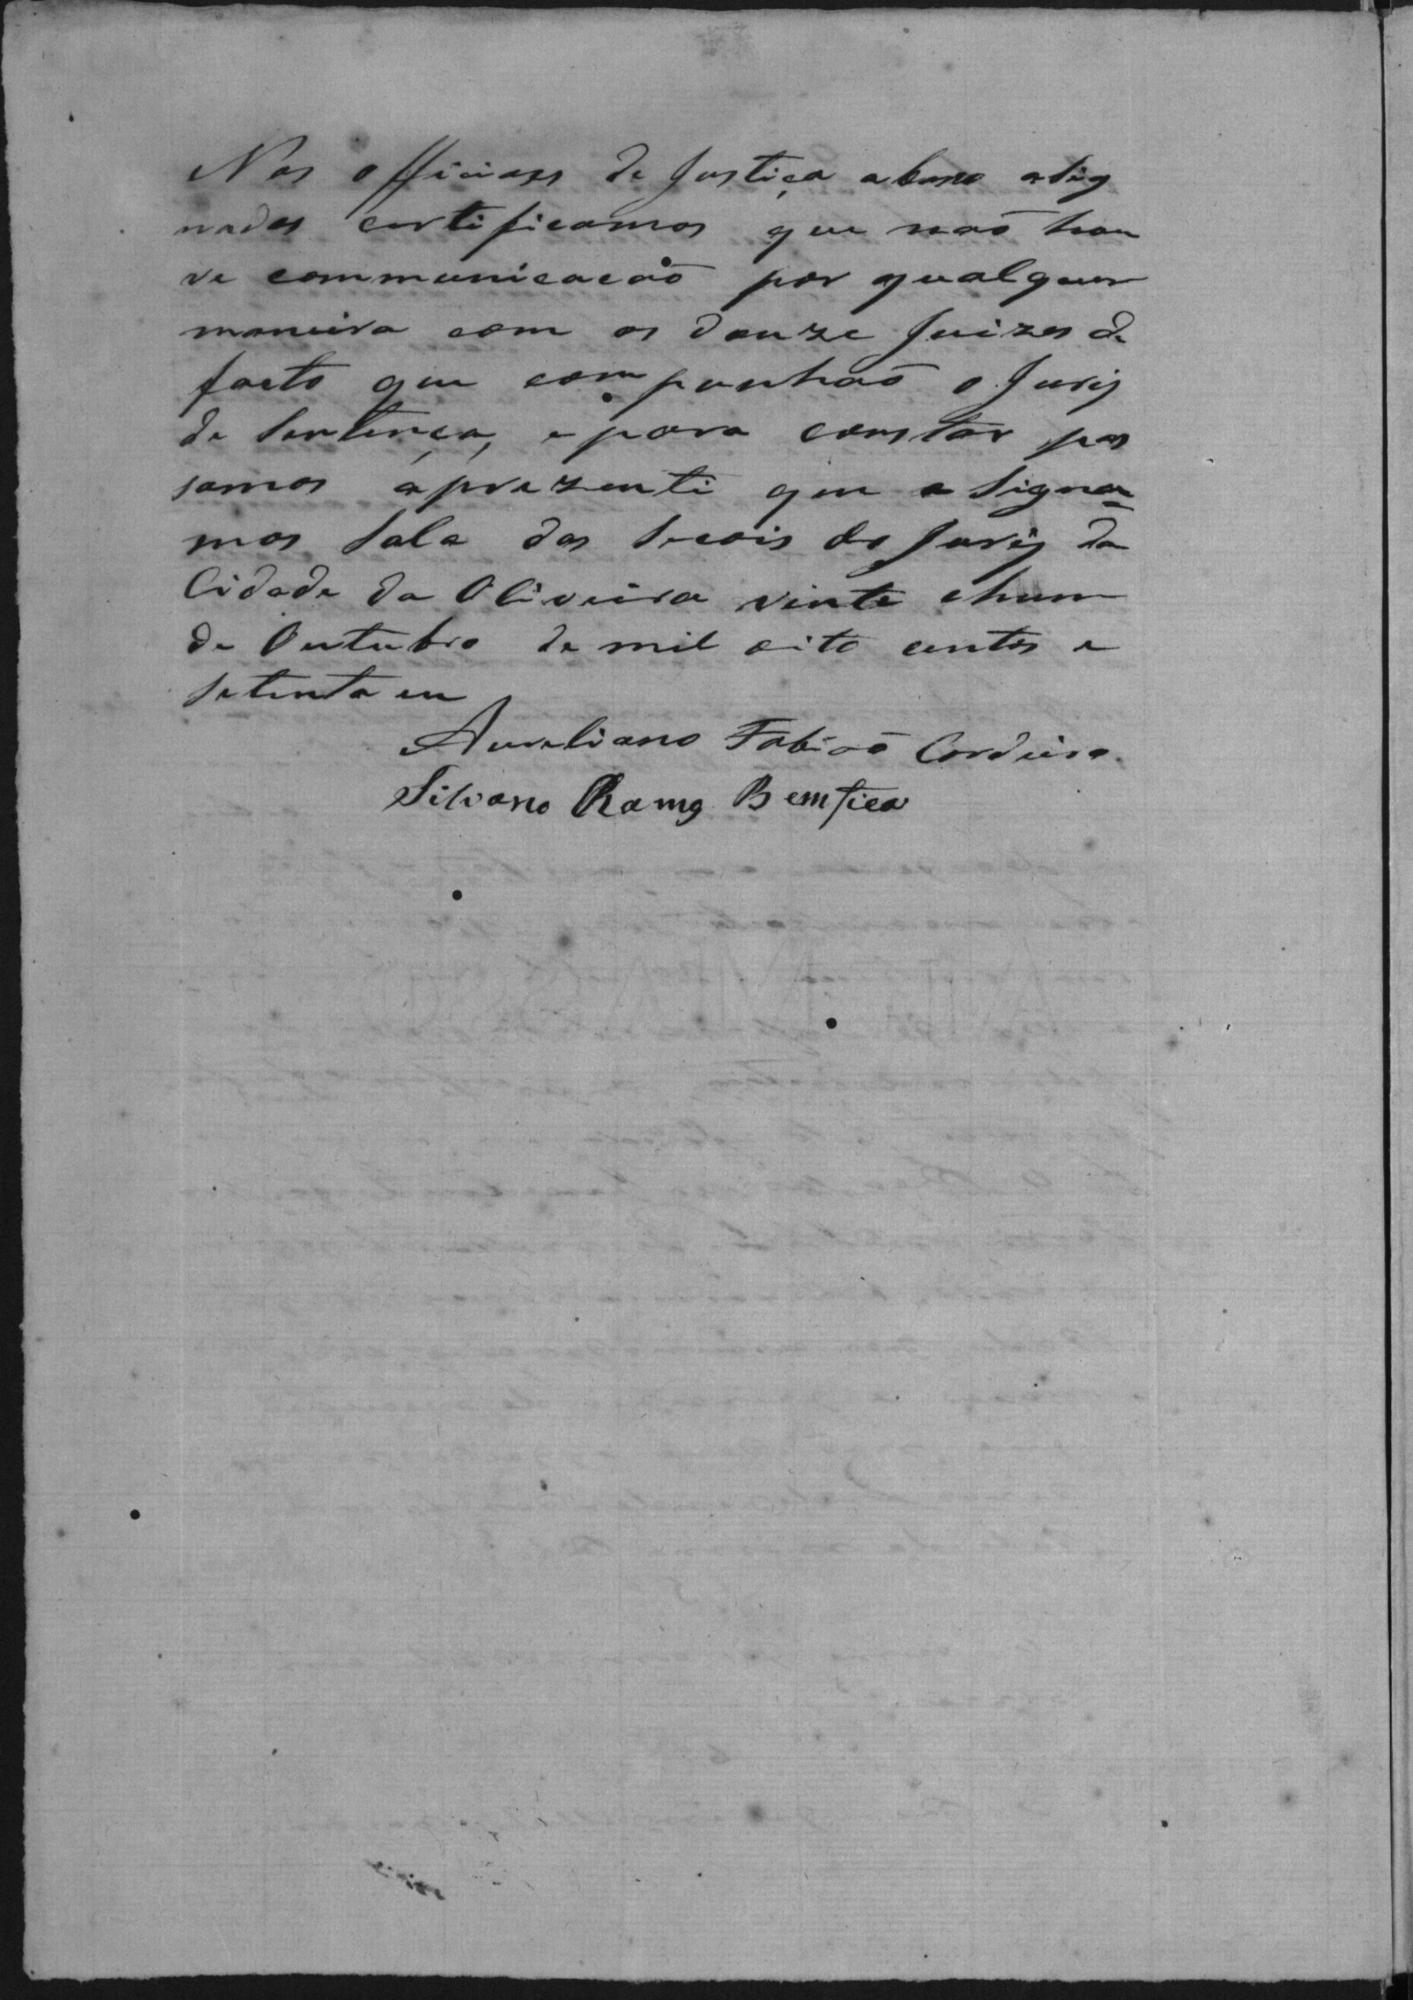 Nos officiaes de Justiça abaxo asig
nados certificamos que naõ hou
ve communicacaõ por qualquer
maneira com os douze Juizes de
facto que componhaõ o Jurij
de Sentença, e para constar pas
samos aprezenti que asigna
mos Sala das Secois do Jurij da
Cidade da Oliveira vinte ehum
de Outubro de mil oito centos e
Setenta eu
Aureliano Fabiaõ Cordeiro.
Silvano Ramos Bemfica